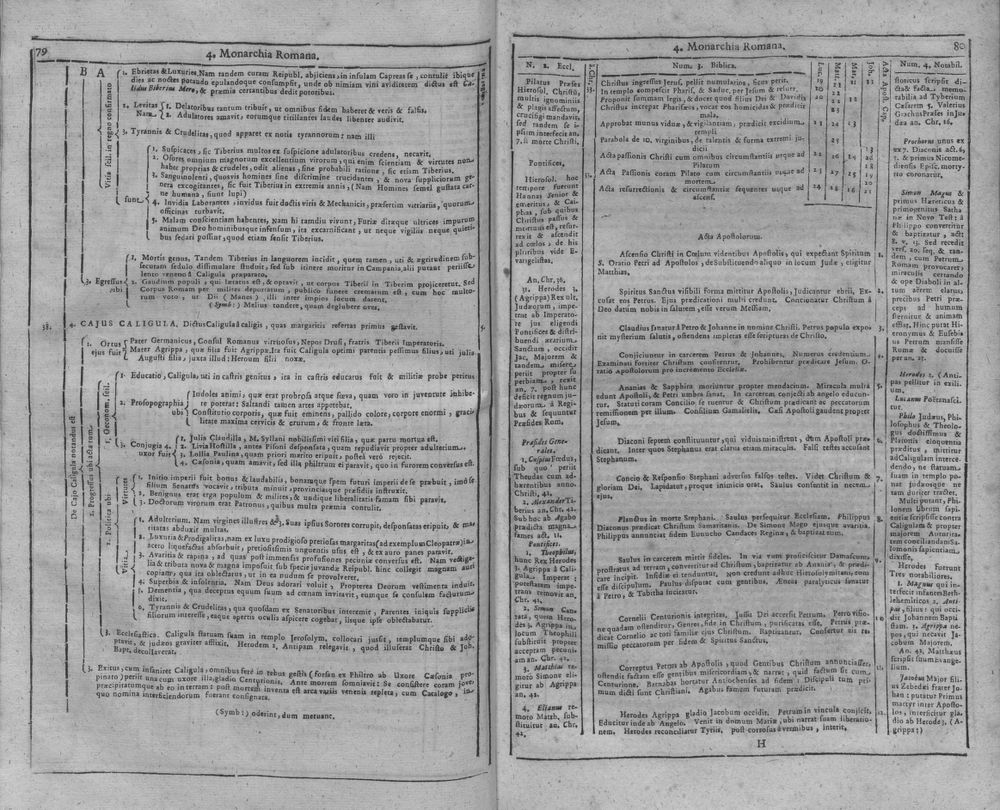 79
4. Monarchia Romana.
B A
Vitia scil. in regno confirmato
1. Ebrietas & Luxuries. Nam tandem curam Reipubl. abjiciens, in insulam Capreas se, contulit ibique
dies ac noctes potando epulandoque consumpsit, unde ob nimiam vini aviditatem dictus est Ca-
lidus Biberius Mero, & præmia certantibus dedit potoribus.
2. Levitas
Nam
1. Delatoribus tantum tribuit, ut omnibus fidem haberet & veris & falsis.
2. Adulatores amavit, eorumque titillantes laudes libenter audivit.
3. Tyrannis & Crudelitas, quod apparet ex notis tyrannorum; nam illi
sunt
1. Suspicaces, sic Tiberius multos ex suspicione adulatoribus credens, necavit.
2. Osores omnium magnorum excellentium virorum, qui enim scientiam & virtutes non
haber proprias & crudeles, odit alienas, sine probabili ratione, sic etiam Tiberius.
3. Sanguinolenti, quosvis homines sine discrimine crucidantes, & nova suppliciorum ge-
nera excogitantes, sic fuit Tiberius in extremis annis, (Nam Homines semel gustata car-
ne humana, fiunt lupi)
4. Invidia Laborantes, invidus fuit doctis viris & Mechanicis, præsertim vitriariis, quorum
officinas turbavit.
5. Malam conscientiam habentes, Nam hi tamdiu vivunt, Furiæ diræque ultrices impurum
animum Deo hominibusque infensum, ita excarnificant, ut neque vigiliis neque quieti-
bus sedari possint, quod etiam sensit Tiberius.
3. Egressus
ubi
1. Mortis genus, Tandem Tiberius in languorem incidit, quem tamen, uti & ægritudinem sub-
secutam sedulo dissimulare studuit, sed sub itinere moritur in Campania, alii putant periisse
lento veneno à Caligula præparato.
2. Gaudium populi, qui lætatus est, & optavit, ut corpus Tiberii in Tiberim projiceretur. Sed
Corpus Romam per milites deportatum, publico funere crematum est, cum hoc multo-
rum voto, ut Dii (Manes) illi inter impios locum darent.
(Symb:) Melius tondere, quam deglubere oves.
38.
4. CAJUS CALIGULA. Dictus Caligula à caligis, quas margaritis refertas primus gestavit.
De Cajo Caligula notandus est
1. Ortus
ejus fuit
Pater Germanicus, Consul Romanus vitriosus, Nepos Drusi, fratris Tiberii Imperatoris.
Mater Agrippa, quæ filia fuit Agrippa. Ita fuit Caligula optimi parentis pessimus filius, uti julia
Augusti filia, juxta illud: Heroum filii noxæ.
2. Progressus ubi acta rerum.
1. Oeconom. scil.
1. Educatio, Caligula, uti in castris genitus, ita in castris educatus fuit & militiæ probe peritus
2. Prosopographia
ubi
Indoles animi, quæ erat probrosa atque sæva, quam vero in juventute inhibe-
re poterat: Saltandi tamen artes appetebat.
Constitutio corporis, quæ fuit eminens, pallido colore, corpore enormi, graci-
litate maxima cervicis & crurum, & fronte lata.
3. Conjugia 4.
uxor fuit
1. Julia Claudilla, M. Syllani nobilissimi viri filia, quæ partu mortua est.
2. Livia Hostilla, antea Pisoni desponsata, quam repudiavit propter adulterium.
3. Lollia Paulina, quam priori marito eripuit, postea verò rejecit.
4. Cæsonia, quam amavit, sed illa philtrum ei paravit, quo in furorem conversus est.
2. Politica ubi
Virtutes
1. Initio imperii fuit bonus & laudabilis, bonamque spem futuri imperii de se præbuit, imò se
filium Senatûs vocavit, tributa minuit, provinciasque præsidiis instruxit.
2. Benignus erat erga populum & milites, & undique liberalitatis famam sibi paravit.
3. Doctorum virorum erat Patronus, quibus multa præmia contulit.
Vitia
1. Adulterium. Nam virgines illustres & 3. suas ipsius Sorores corrupit, desponsatas eripuit, & ma-
ritatas abduxit multas.
2. Luxuria & Prodigalitas, nam ex luxu prodigioso pretiosas margaritas (ad exemplum Cleopatræ) in a-
cero liquefactas absorbuit, pretiosissimis unguentis usus est, & ex auro panes paravit.
3. Avaritia & rapina, ad quas post immensâ profusionem pecuniæ conversus est. Nam vectiga-
lia & tributa nova & magna imposuit sub specie juvandæ Reipubl. hinc collegit magnam auri
copiam, quâ ita oblectatus, ut in ea nudum se provolveret.
4. Superbia & insolentia. Nam Deus adorari voluit, Propterea Deorum vestimenta induit.
5. Dementia, qua deceptus equum suum ad cœnam invitavit, eumque se consulem facturum
dixit.
6. Tyrannis & Crudelitas, qua quosdam ex Senatoribus interemit, Parentes iniquis suppliciis
filiorum interesse, eaque apertis oculis aspicere cogebat, iisque ipse oblectabatur.
3. Ecclesiastica. Caligula statuam suam in templo Jerosolym. collocari jussit, templumque sibi adop-
tavit, & judæos graviter afflixit. Herodem 2, Antipam relegavit, quod illuserat Christo & Joh.
Bapt. decollaverat.
3. Exitus, cum insaniret Caligula, omnibus ferè in rebus gestis (forsan ex Philtro ab Uxore Cæsonia pro-
pinato) periit una cum uxore illa, gladio Centurionis. Ante mortem somniavit: Se consistere coram jove,
præcipitatumque ab eo in terram: post mortem inventa est arca variis venenis repleta, cum Catalogo, in
quo nomina interficiendorum fuerant consignata.
(Symb:) oderint, dum metuant.
80
4. Monarchia Romana.
N. 2. Eccl.
Pilatus Præses
Hierosol. Christū,
multis ignominiis
& plagis affectum,
crucifigi mandavit,
sed tandem se i-
psum interfecit an.
7. post mortē Christi.
Pontifices.
Hierosol. hoc
tempore fuerunt
Hannas Senior &
emeritus, & Cai-
phas, sub quibus
Christus passus &
mortuus est, resur-
rexit & ascendit
ad cœlos. de his
pluribus vide E-
vangelistas.
An. Chr. 38.
31. Herodes 3.
(Agrippa) Rex ult.
Judæorum, impe-
trat ab Imperato-
re jus eligendi
Pontifices & distri-
buendi ærarium
Sanctum, occidit
Jac. Majorem &
tandem, misere,
periit propter su-
perbiam, rexit
an. 7. post hunc
deficit regnum ju-
dæorum à Regi-
bus & sequuntur
Præsides Rom.
Præsides Gene-
rales.
1. Cuspius Fœdus,
sub quo periit
Theudas cum ad-
hærentibus anno
Christi, 42.
2. Alexander Ti-
berius an. Chr. 42.
Sub hoc ab Agabo
prædicta magna
fames act. 11.
Pontifices.
1. Theophilus,
hunc Rex Herodes
3. Agrippa à Cali-
gula Imperat:
potestatem impe-
trans removit an.
Chr. 42.
2. Simon Can-
tata, quem Hero-
des 3. Agrippa in
locum Theophili
substituit propter
acceptam pecuni-
am an. Chr. 42.
3. Matthias re-
moto Simone eli-
gitur ab Agrippa
an. 43.
4. Elianus re-
moto Matth. sub-
stituitur an. Chr.
44.
à Chr.
33.
Num. 3. Biblica.
Luc. Matt. Mar. Joh. Acta Apost. Cap.
Christus ingressus Jerus. pellit numularios, ficus perit. 19 21 11 12
In templo compescit Phariss. & Saduc. per Jesum & resurr. 20 22
Proponit summam legis, & docet quod filius Dei & Davidis 20 22 12
Christus increpat Phariseos, vocat eos homicidas & prædicit
mala. 23
Approbat munus viduæ, & vigilantiam, prædicit excidium
templi 21 24 13
Parabola de 10. virginibus, de talentis & forma extremi ju-
dicii 25
Acta passionis Christi cum omnibus circumstantiis usque ad
Pilatum 22 26 14 13 18
Acta Passionis coram Pilato cum circumstantiis usque ad
mortem. 23 27 15 19
Acta resurrectionis & circumstantiæ sequentes usque ad
ascens. 24 28 16 20 21
Acta Apostolorum.
Ascensio Christi in Cœlum videntibus Apostolis, qui expectant Spiritum 1.
S. Oratio Petri ad Apostolos, de substituendo aliquo in locum Judæ, eligitur
Matthias.
Spiritus Sanctus visibili forma mittitur Apostolis, Judicantur ebrii, Ex- 2.
cusat eos Petrus. Ejus prædicationi multi credunt. Concionatur Christum à
Deo datum nobis in salutem, esse verum Messiam.
Claudius sanatur à Petro & Johanne in nomine Christi. Petrus populo expo- 3.
nit mysterium salutis, ostendens impletas esse scripturas de Christo.
Conjiciuntur in carcerem Petrus & Johannes. Numerus credentium. 4.
Examinati fortiter Christum confitentur. Prohibentur prædicare Jesum. O-
ratio Apostolorum pro incremento Ecclesiæ.
Ananias & Sapphira moriuntur propter mendacium. Miracula multa 5.
edunt Apostoli, & Petri umbra sanat. In carcerem conjecti ab angelo educun-
tur. Statuti coram Concilio se tuentur & Christum prædicant & peccatorum
remissionem per illum. Consilium Gamalielis. Cæsi Apostoli gaudent propter
Jesum.
Diaconi septem constituuntur, qui viduis ministrent, dum Apostoli præ- 6.
dicant. Inter quos Stephanus erat clarus etiam miraculis. Falsi testes accusant
Stephanum.
Concio & Responsio Stephani adversus falsos testes. Videt Christum & 7.
gloriam Dei. Lapidatur, proque inimicis orat. Saulus consentit in necem
ejus.
Planctus in morte Stephani. Saulus persequitur Ecclesiam. Philippus 8.
Diaconus prædicat Christum Samaritanis. De Simone Mago ejusque avaritia.
Philippus annunciat fidem Eunucho Candaces Reginæ, & baptizat eum.
Saulus in carcerem mittit fideles. In via cum proficiscitur Damascum, 9.
prosternitur ad terram, convertitur ad Christum, baptizatur ab Anania, & prædi-
care incipit. Insidiæ ei tenduntur. Non credunt adhuc Hierosolymitani, eum
esse discipulum. Paulus disputat cum gentibus. Æneas paralyticus sanatur
à Petro, & Tabitha suscitatur.
Cornelii Centurionis integritas. Jussu Dei accersit Petrum. Petro visio- 10
ne quadam ostenditur, Gentes, fide in Christum, purificatas esse. Petrus præ-
dicat Cornelio ac toti familiæ ejus Christum. Baptizantur. Confertur eis re-
missio peccatorum per fidem & Spiritus Sanctus.
Correptus Petrus ab Apostolis, quod Gentibus Christum annunciasset, 11.
ostendit factam esse gentibus misericordiam, & narrat, quid factum sit cum
Centurione. Barnabas hortatur Antiochenses ad fidem: Discipuli tum pri-
mum dicti sunt Christiani. Agabus famem futuram prædicit.
Herodes Agrippa gladio Jacobum occidit. Petrum in vincula conjicit, 12.
Educitur inde ab Angelo. Venit in domum Mariæ, ubi narrat suam liberatio-
nem. Herodes reconciliatur Tyriis, post corrosus à vermibus, interit.
H
Num. 4. Notabil.
sionicus scripsit di-
cta & facta memo-
rabilia ad Tyberium
Cæsarem 5. Valerius
Gracchus Præses in Ju-
dæa an. Chr. 16.
Prochorus unus ex
ex 7. Diaconis act. 6,
5. & primus Nicome-
diensis Episc. marty-
rio coronatur.
Simon Magus &
primus Hæreticus &
primogenitus Satha-
næ in Novo Test: à
Philippo convertitur
& baptizatur, act:
8. v. 13. Sed recedit
vers. 20. seq. & tan-
dem, cum Petrum
Romam provocaret:
miraculis certando
& ope Diaboli in al-
tum aërem elatus,
precibus Petri præ-
ceps ad humum
sternitur & animam
efflat. Hinc putat Hi-
eronymus & Eusebi-
us Petrum mansisse
Romæ & docuisse
per an. 25.
Herodes 2. (Anti-
pas) pellitur in exili-
um.
Lucanus Poëta nasci-
tur.
Philo Judæus, Phi-
losophus & Theolo-
gus doctissimus &
Platonis eloquentia
præditus, mittitur
ad Caligulam interce-
dendo, ne statuam
suam in templo po-
nat judæosque ne
tam duriter tractet.
Multi putant, Phi-
lonem librum sapi-
entiæ scripsisse contra
Caligulam & propter
majorem Autorita-
tem conciliandam Sa-
lomonis sapientiam
dixisse.
Herodes fuerunt
Tres notabiliores.
1. Magnus qui in-
terfecit infantes Beth-
lehemiticos 2. Anti-
pas, filius: qui occi-
dit Johannem Bapti-
stam. 3. Agrippa ne-
pos, qui necavit Ja-
cobum Majorem.
An. 42. Matthæus
scripsit suum Evange-
lium.
Jacobus Major fili-
us Zebedæi frater Jo-
han: putatur Primus
martyr inter Aposto-
los, interficitur gla-
dio ab Herode 3. (A-
grippa:)